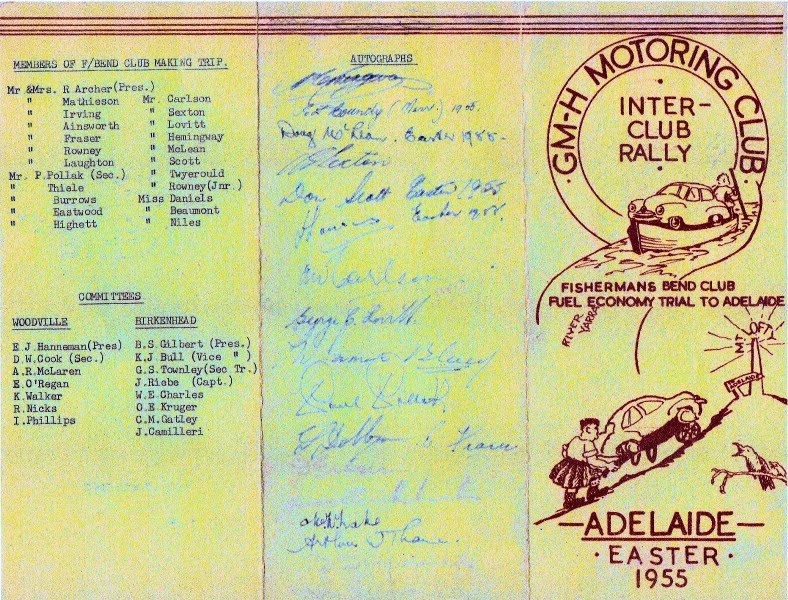 MEMBERS OF F/BEND CLUB MAKING TRIP.
Mr &Mrs. R Archer(Pres.)
" Mathieson Mr. Carlson
" Irving " Sexton
" Ainsworth " Lovitt
" Fraser " Hemingway
" Rowney " McLean
" Laughton " Scott
Mr. P.Pollak (Sec.) " Twyerould
" Thiele " Rowney(Jnr.)
" Burrows Miss Daniels
" Eastwood " Beaumont
" Highett " Niles
COMMITTEES
WOODVILLE
E.J.Hanneman(Pres)
D.W.Cook (Sec.)
A.R.McLaren
E.O'Regan
K.Walker
R.Nicks
I.Phillips
BIRKENHEAD
B.S.Gilbert (Pres.)
K.J.Bull (Vice " )
G.S.Townley(Sec Tr.)
J.Riebe (Capt.)
W.E.Charles
O.E Kruger
C.M.Gatley
J.Camilleri
AUTOGRAPHS
Hemingway
1955.
Doug McLean. Easter 1955-
Sexton
Don Scott Easter 1955
Easter 1955.
Carlson
George E. Lovitt
Fraser
Arthur J Thane.
GM-H MOTORING CLUB
INTER-
CLUB
RALLY
FISHERMANS BEND CLUB
FUEL ECONOMY TRIAL TO ADELAIDE
RIVER
YARRA
MT LOFTY
ADELAIDE
ADELAIDE
EASTER
1955